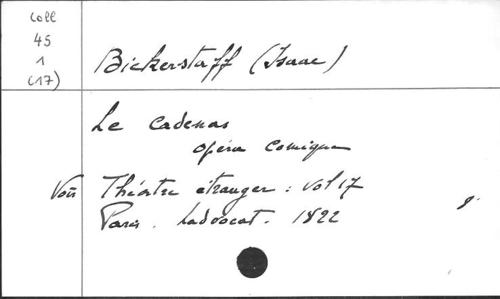 Coll
45
1
(17)
Bickerstaff (Isaac)
Le Cadenas
opéra comique
Voir Théâtre étranger : vol 17
Paris. Ladvocat. 1822
8°